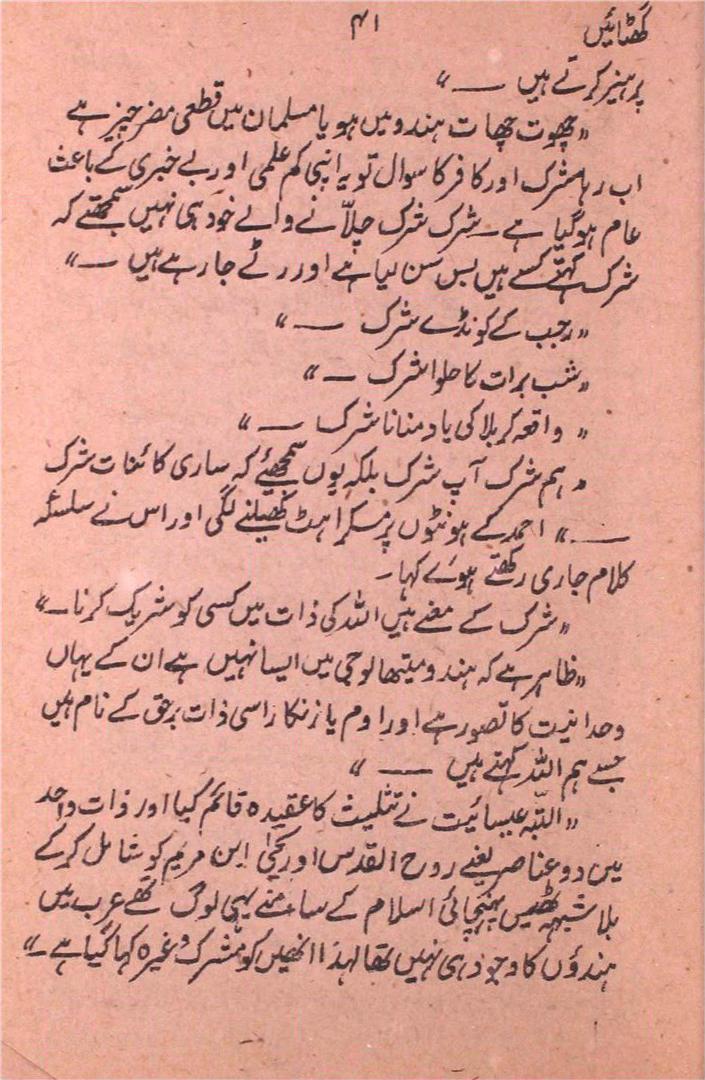 گھٹائیں ۴۱
پرہیز کرتے ہیں ــــ “
” چھوت چھات ہندو میں ہو یا مسلمان میں قطعی مضر چیز ہے
اب رہا مشرک اور کافر کا سوال تو یہ اپنی کم علمی اور بے خبری کے باعث
عام ہو گیا ہے ــ شرک شرک چلّانے والے خود ہی نہیں سمجھتے کہ
شرک کہتے کسے ہیں بس سن لیا ہے اور رٹے جا رہے ہیں ــــ “
” رجب کے کونڈے شرک ــــ “
” شب برات کا حلوا شرک ــــ “
” واقعہ کربلا کی یاد منانا شرک ــــ “
” ہم شرک آپ شرک بلکہ یوں سمجھیئے کہ ساری کائنات شرک
ــــ “ احمد کے ہونٹوں پر مسکراہٹ کھیلنے لگی اور اس نے سلسلہ
کلام جاری رکھتے ہوئے کہا ــ
” شرک کے معنے ہیں اللہ کی ذات میں کسی کو شریک کرنا ــ “
” ظاہر ہے کہ ہندو میتھالوجی میں ایسا نہیں ہے ان کے یہاں
وحدانیت کا تصور ہے اور اوم یا نرنکار اسی ذات برحق کے نام ہیں
جسے ہم اللہ کہتے ہیں ــــ “
” البتہ عیسائیت نے تثلیث کا عقیدہ قائم کیا اور ذات واحد
میں دو عناصر یعنے روح القدس اور یحییٰ ابن مریم کو شامل کر کے
بلا شبہہ ٹھیس پہنچائی اسلام کے سامنے یہی لوگ تھے عرب میں
ہندؤں کا وجود ہی نہیں تھا لہذا انھیں کو مشرک وغیرہ کہا گیا ہے ــ “